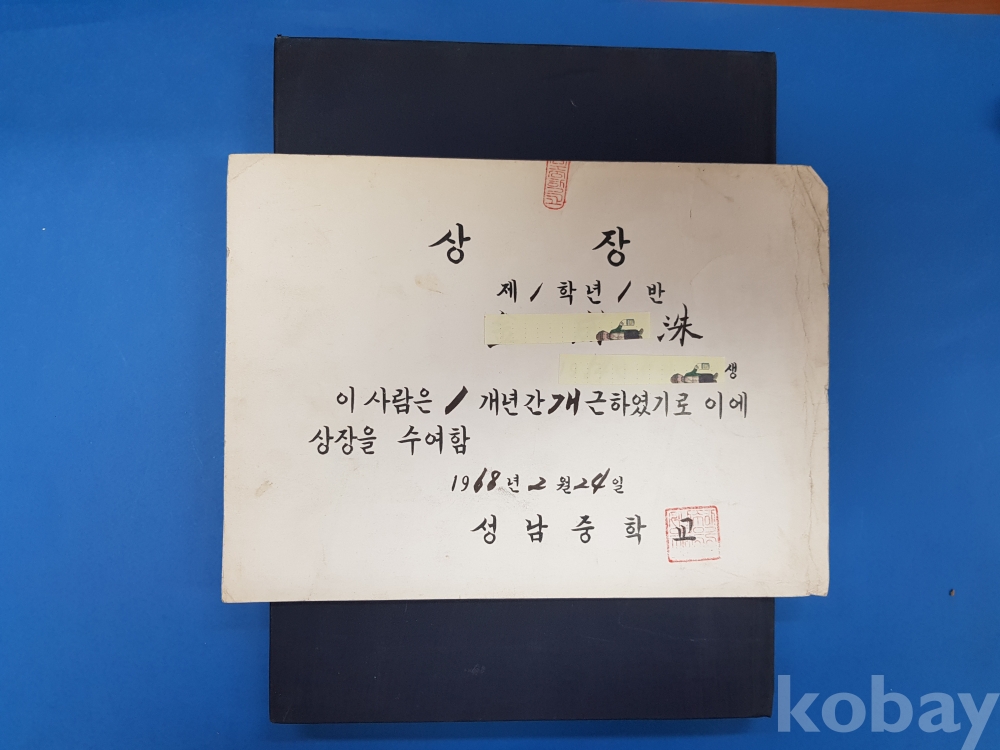 상 장
제 1 학년 1 반
洙
생
이 사람은 1 개년간 개근하였기로 이에
상장을 수여함
1968년 2월 24일
성남중학교
kobay